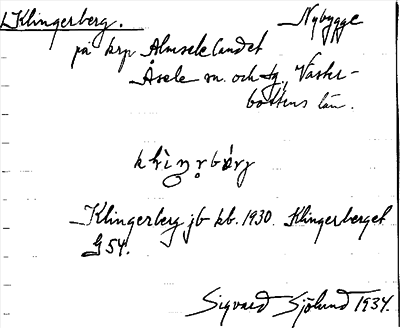 Klingerberg. Nybygge
på krp Almselelandet
Åsele sn. och tg, Väster-
bottens län.
Klingerberg jb kb. 1930. Klingerberget
G 54.
Sigvard Sjölund 1934.